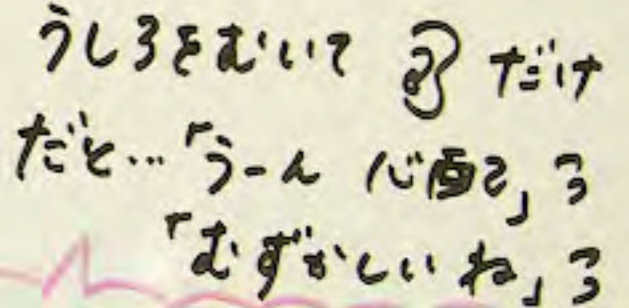 うしろをむいて だけ
だと…「うーん 心西已」ろ
「むずかしい ね」ろ